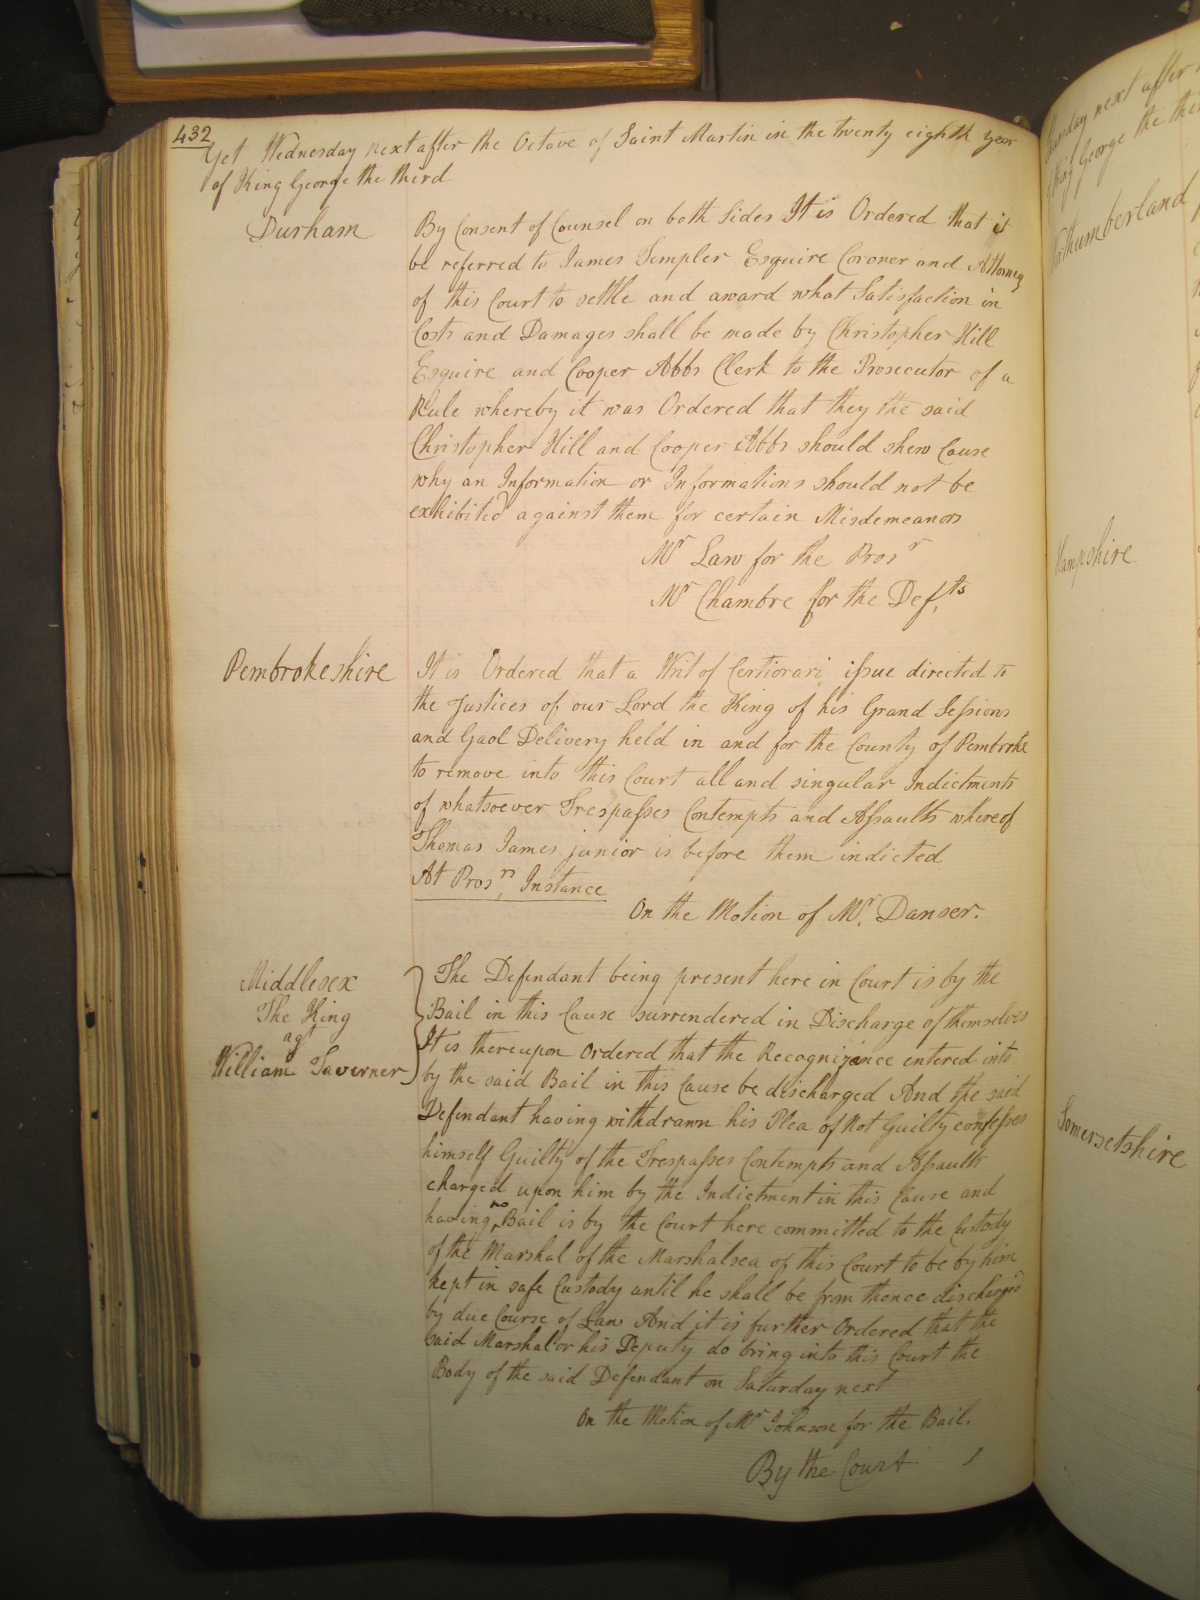 432
Yet Wednesday next after the Octave of Saint Martin in the twenty eighth year
of King George the third
Durham
By Consent of Counsel on both Sides It is Ordered that it
be referred to James Templer Esquire Coroner and Attorney
of this Court to settle and award what Satisfaction in
Costs and Damages shall be made by Christopher Hill
Esquire and Cooper Abbs Clerk to the Prosecutor of a
Rule whereby it was Ordered that they the said
Christopher Hill and Cooper Abbs should shew Cause
why an Information or Informations should not be
exhibited against them for certain Misdemeanors
Mr Law for the Prosr
Mr Chambre for the Defts
Pembrokeshire
It is Ordered that a Writ of Certiorari issue directed to
the Justices of our Lord the King of his Grand Sessions
and Gaol Delivery held in and for the County of Pembroke
to remove into this Court all and singular Indictments
of whatsoever Trespasses Contempts and Assaults whereof
Thomas James junior is before them indicted
At Prosrs Instance
On the Motion of Mr. Danser.
Middlesex
The King
agt
William Taverner
The Defendant being present here in Court is by the
Bail in this Cause surrendered in Discharge of themselves
It is thereupon Ordered that the Recognizance entered into
by the said Bail in this Cause be discharged And the said
Defendant having withdrawn his Plea of Not Guilty confesses
himself Guilty of the Trespasses Contempts and Assaults
charged upon him by the Indictment in this Cause and
having no Bail is by the Court here committed to the Custody
of the Marshal of the Marshalsea of this Court to be by him
kept in safe Custody until he shall be from thence discharged
by due Course of Law And it is further Ordered that the
said Marshal or his Deputy do bring into this Court the
Body of the said Defendant on Saturday next
On the Motion of Mr Johnson for the Bail.
By the Court
next after
King George the thi
Northumberland
Hampshire
Somersetshire